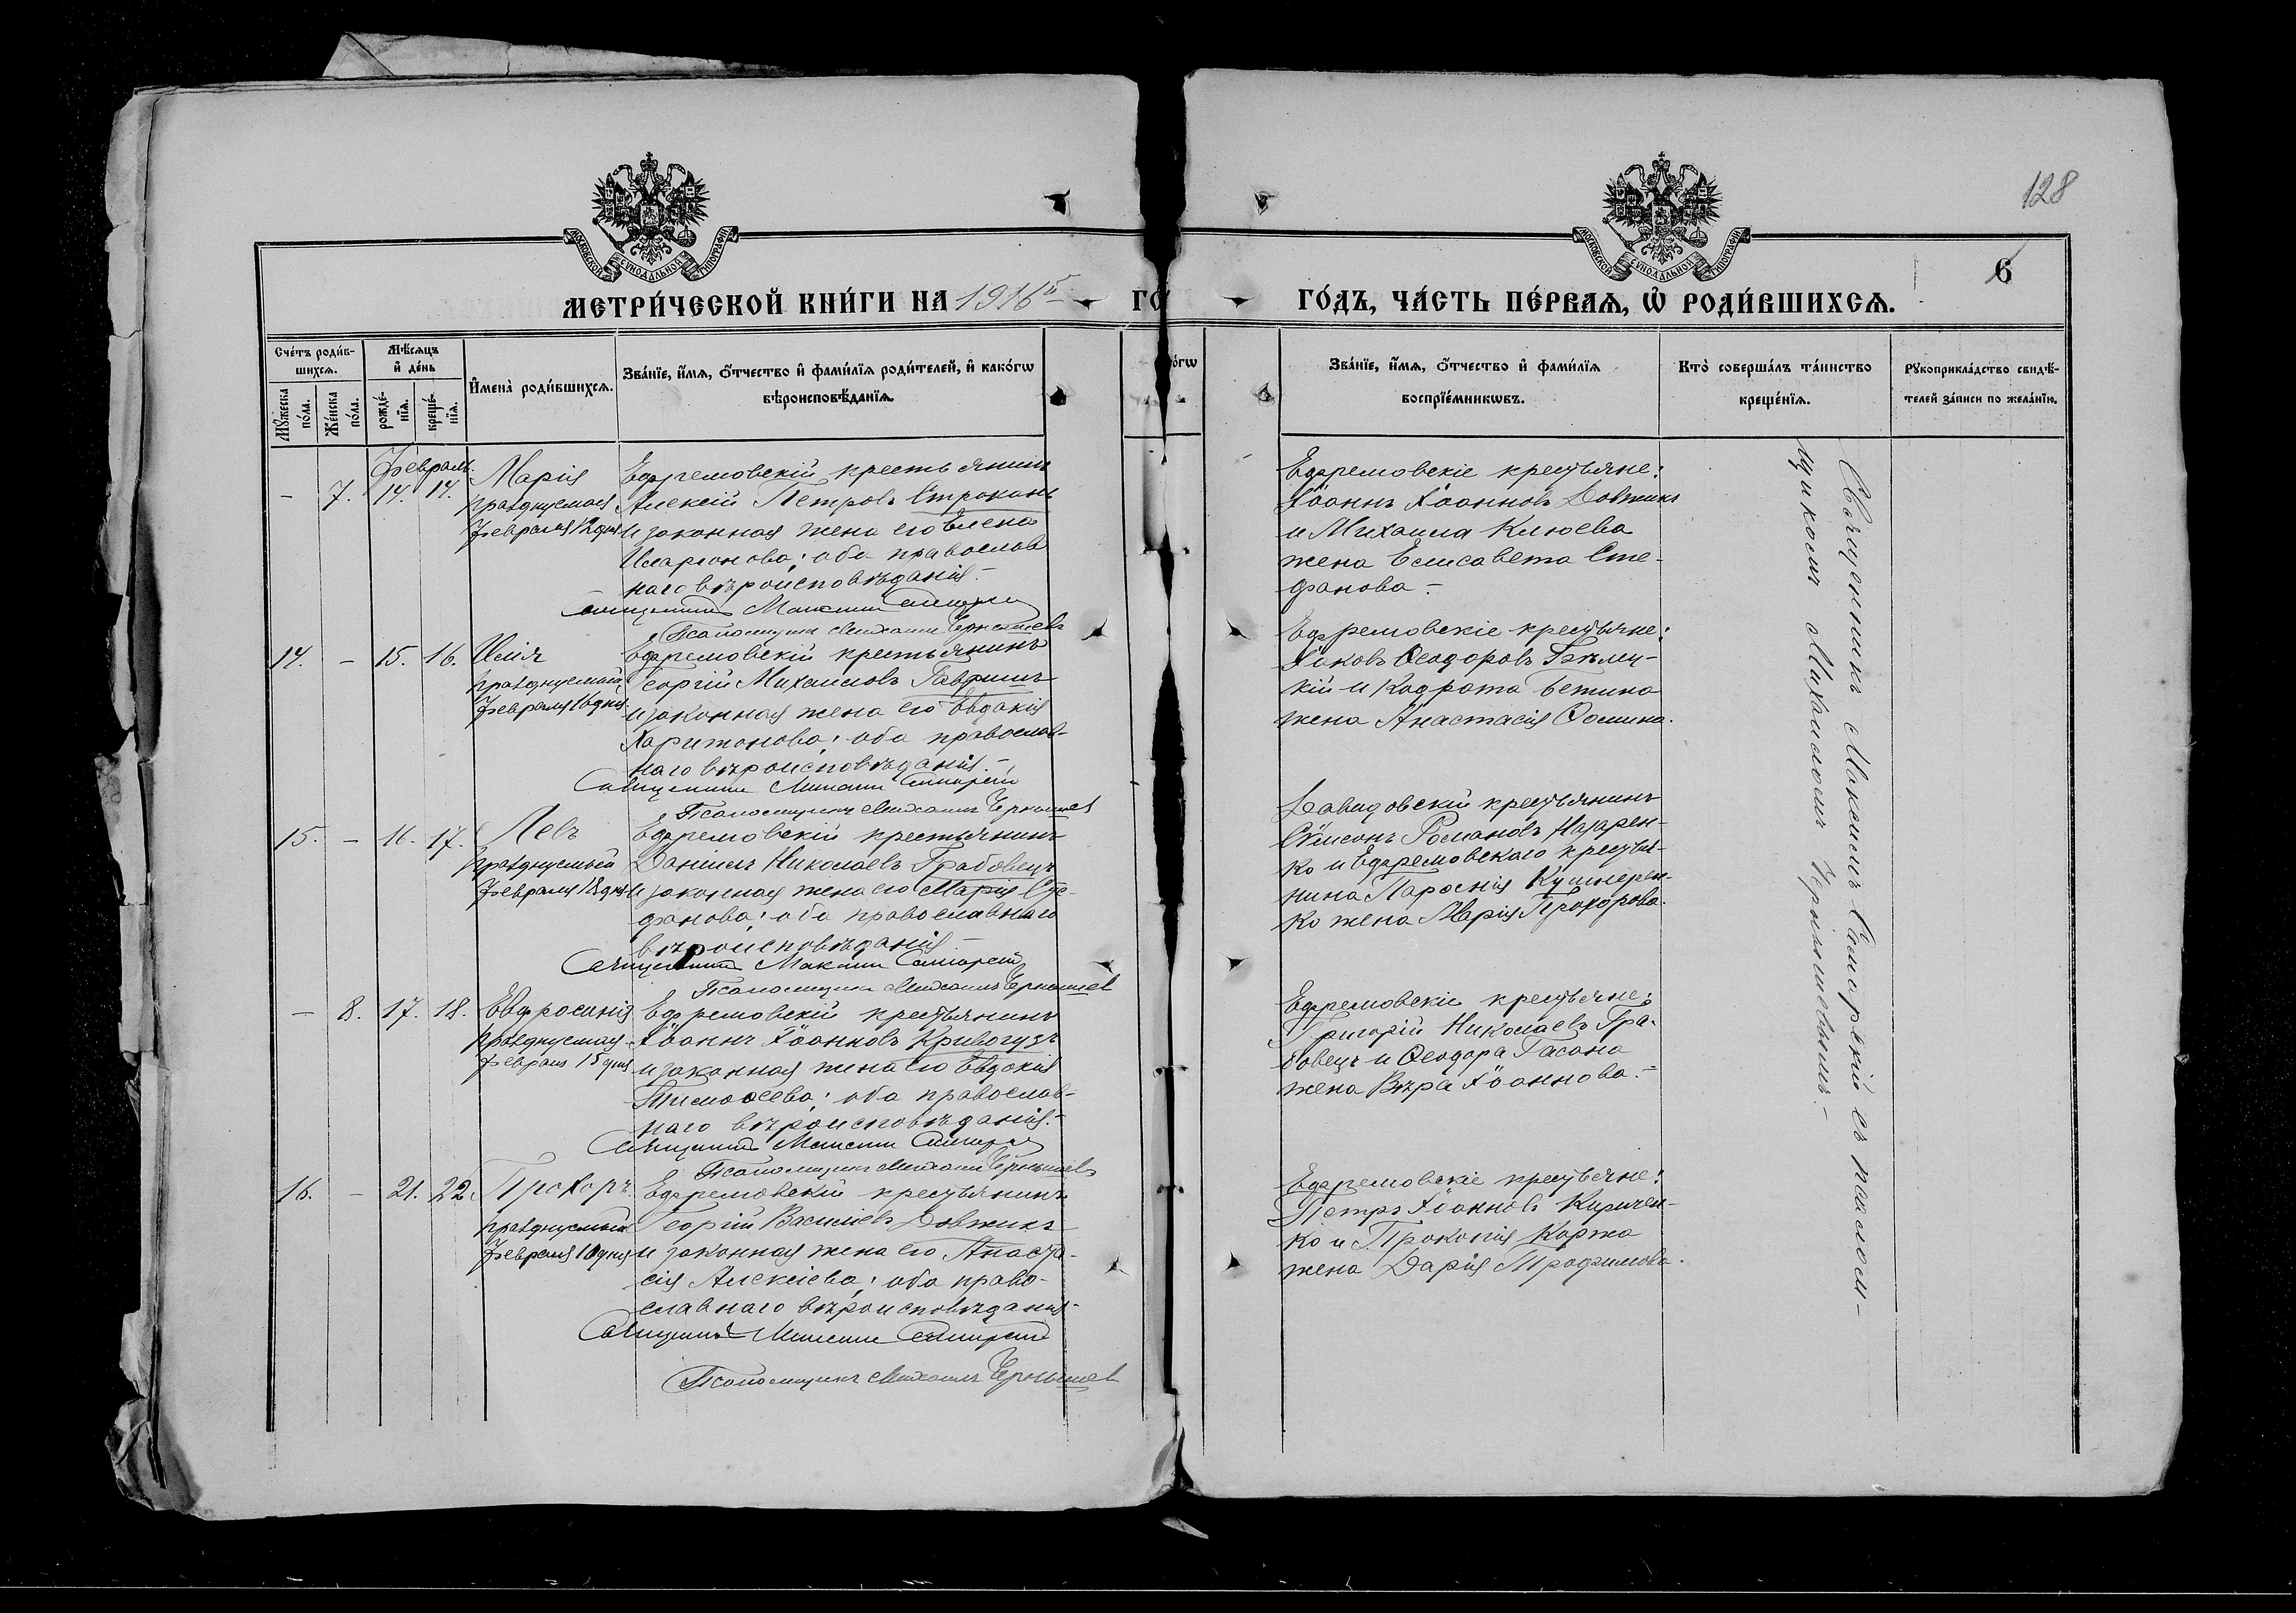 128
МОСКОВСКОЙ СѴНОДАЛЬНОЙ ТИПОГРАФІИ
МОСКОВСКОЙ СѴНОДАЛЬНОЙ ТИПОГРАФІИ
6
МЕТРИ́ЧЕСКОЙ КНИ́ГИ НА 1916й ГО
ГО́ДЪ, ЧА́СТЬ ПЕ́РВАѦ, Ѡ҆ РОДИ́ВШИХСѦ.
Сче́тъ роди́в-
шихсѧ.
Мꙋ́жеска по́ла.
Же́нска по́ла.
Мѣ́сѧцъ
и҆ де́нь
рожде́-
нїѧ.
креще́-
нїѧ.
И҆мена̀ роди́вшихсѧ.
Зва́нїе, и҆́мѧ, ѻ҆́тчество и҆ фами́лїѧ роди́телей, и҆ како́гѡ
вѣроисповѣ́данїѧ.
о́гѡ
Зва́нїе, и҆́мѧ, ѻ҆́тчество и҆ фами́лїѧ
воспрїе́мникѡвъ.
Кто̀ соверша́лъ та́инство
креще́нїѧ.
Рꙋкоприкла́дство свидѣ́-
телей за́писи по жела́нїю.
Февраль.
- 7. 14. 14.
Марія
празднуемая
февраля 12 дня
Ефремовскій крестьянинъ
Алексій Петровъ Строканъ
и законная жена его Елена
Иларіонова; оба православ
наго вѣроисповѣданія.-
Священникъ Максимъ Самарскій
Псаломщикъ Михаилъ Чернышев
Ефремовскіе крестьяне:
Іоаннъ Іоанновъ Довжикъ
и Михаила Клюева
жена Елисавета Сте-
фанова.-
14. - 15. 16.
Илія
празднуемый
февраля 16 дня
Ефремовскій крестьянинъ
Георгій Михаиловъ Гавришъ
и законная жена его Евдокія
Харитонова; оба православ-
наго вѣроисповѣданія.-
Священникъ Максимъ Самарскій
Псаломщикъ Михаилъ Чернышев
Ефремовскіе крестьяне:
Іаковъ Ѳеодоровъ Бѣлец-
кій и Кодрата Бетина
жена Анастасія Ѳомина.
15. - 16. 17.
Левъ
празднуемый
февраля 18 дня
Ефремовскій крестьянинъ
Даніилъ Николаевъ Грабовецъ
и законная жена его Марія Сте-
фанова; оба православнаго
вѣроисповѣданія.-
Священникъ Максимъ Самарскій
Псаломщикъ Михаилъ Чернышев
Давидовскій крестьянинъ
Сѵмеонъ Романовъ Назарен-
ко и Ефремовскаго крестья-
нина Кушнерен-
ко жена Марія Прохорова.
- 8. 17. 18.
Евфросинія
празднуемая
февраля 15 дня
Ефремовскій крестьянинъ
Іоаннъ Іоанновъ Кривогузъ
и законная жена его Евдокія
Тимоѳеева; оба православ-
наго вѣроисповѣданія.-
Священникъ Максимъ Самарскій
Псаломщикъ Михаилъ Чернышев
Ефремовскіе крестьяне:
Григорій Николаевъ Гра-
бовецъ и Ѳеодора Гасана
жена Вѣра Іоаннова.-
16. - 21. 22.
Прохоръ
празднуемый
февраля 10 дня
Ефремовскій крестьянинъ
Георгій Василіевъ Довжикъ
и законная жена его Анаста-
сія Алексіева; оба право-
славнаго вѣроисповѣданія-
Священникъ Максимъ Самарскій
Псаломщикъ Михаилъ Чернышев
Ефремовскіе крестьяне:
Петръ Іоанновъ Киричен-
ко и Прокопія Коржа
жена Дарія Трофимова.
Священникъ Максимъ Самарскій съ псалом-
щикомъ Михаиломъ Чернышевымъ.-